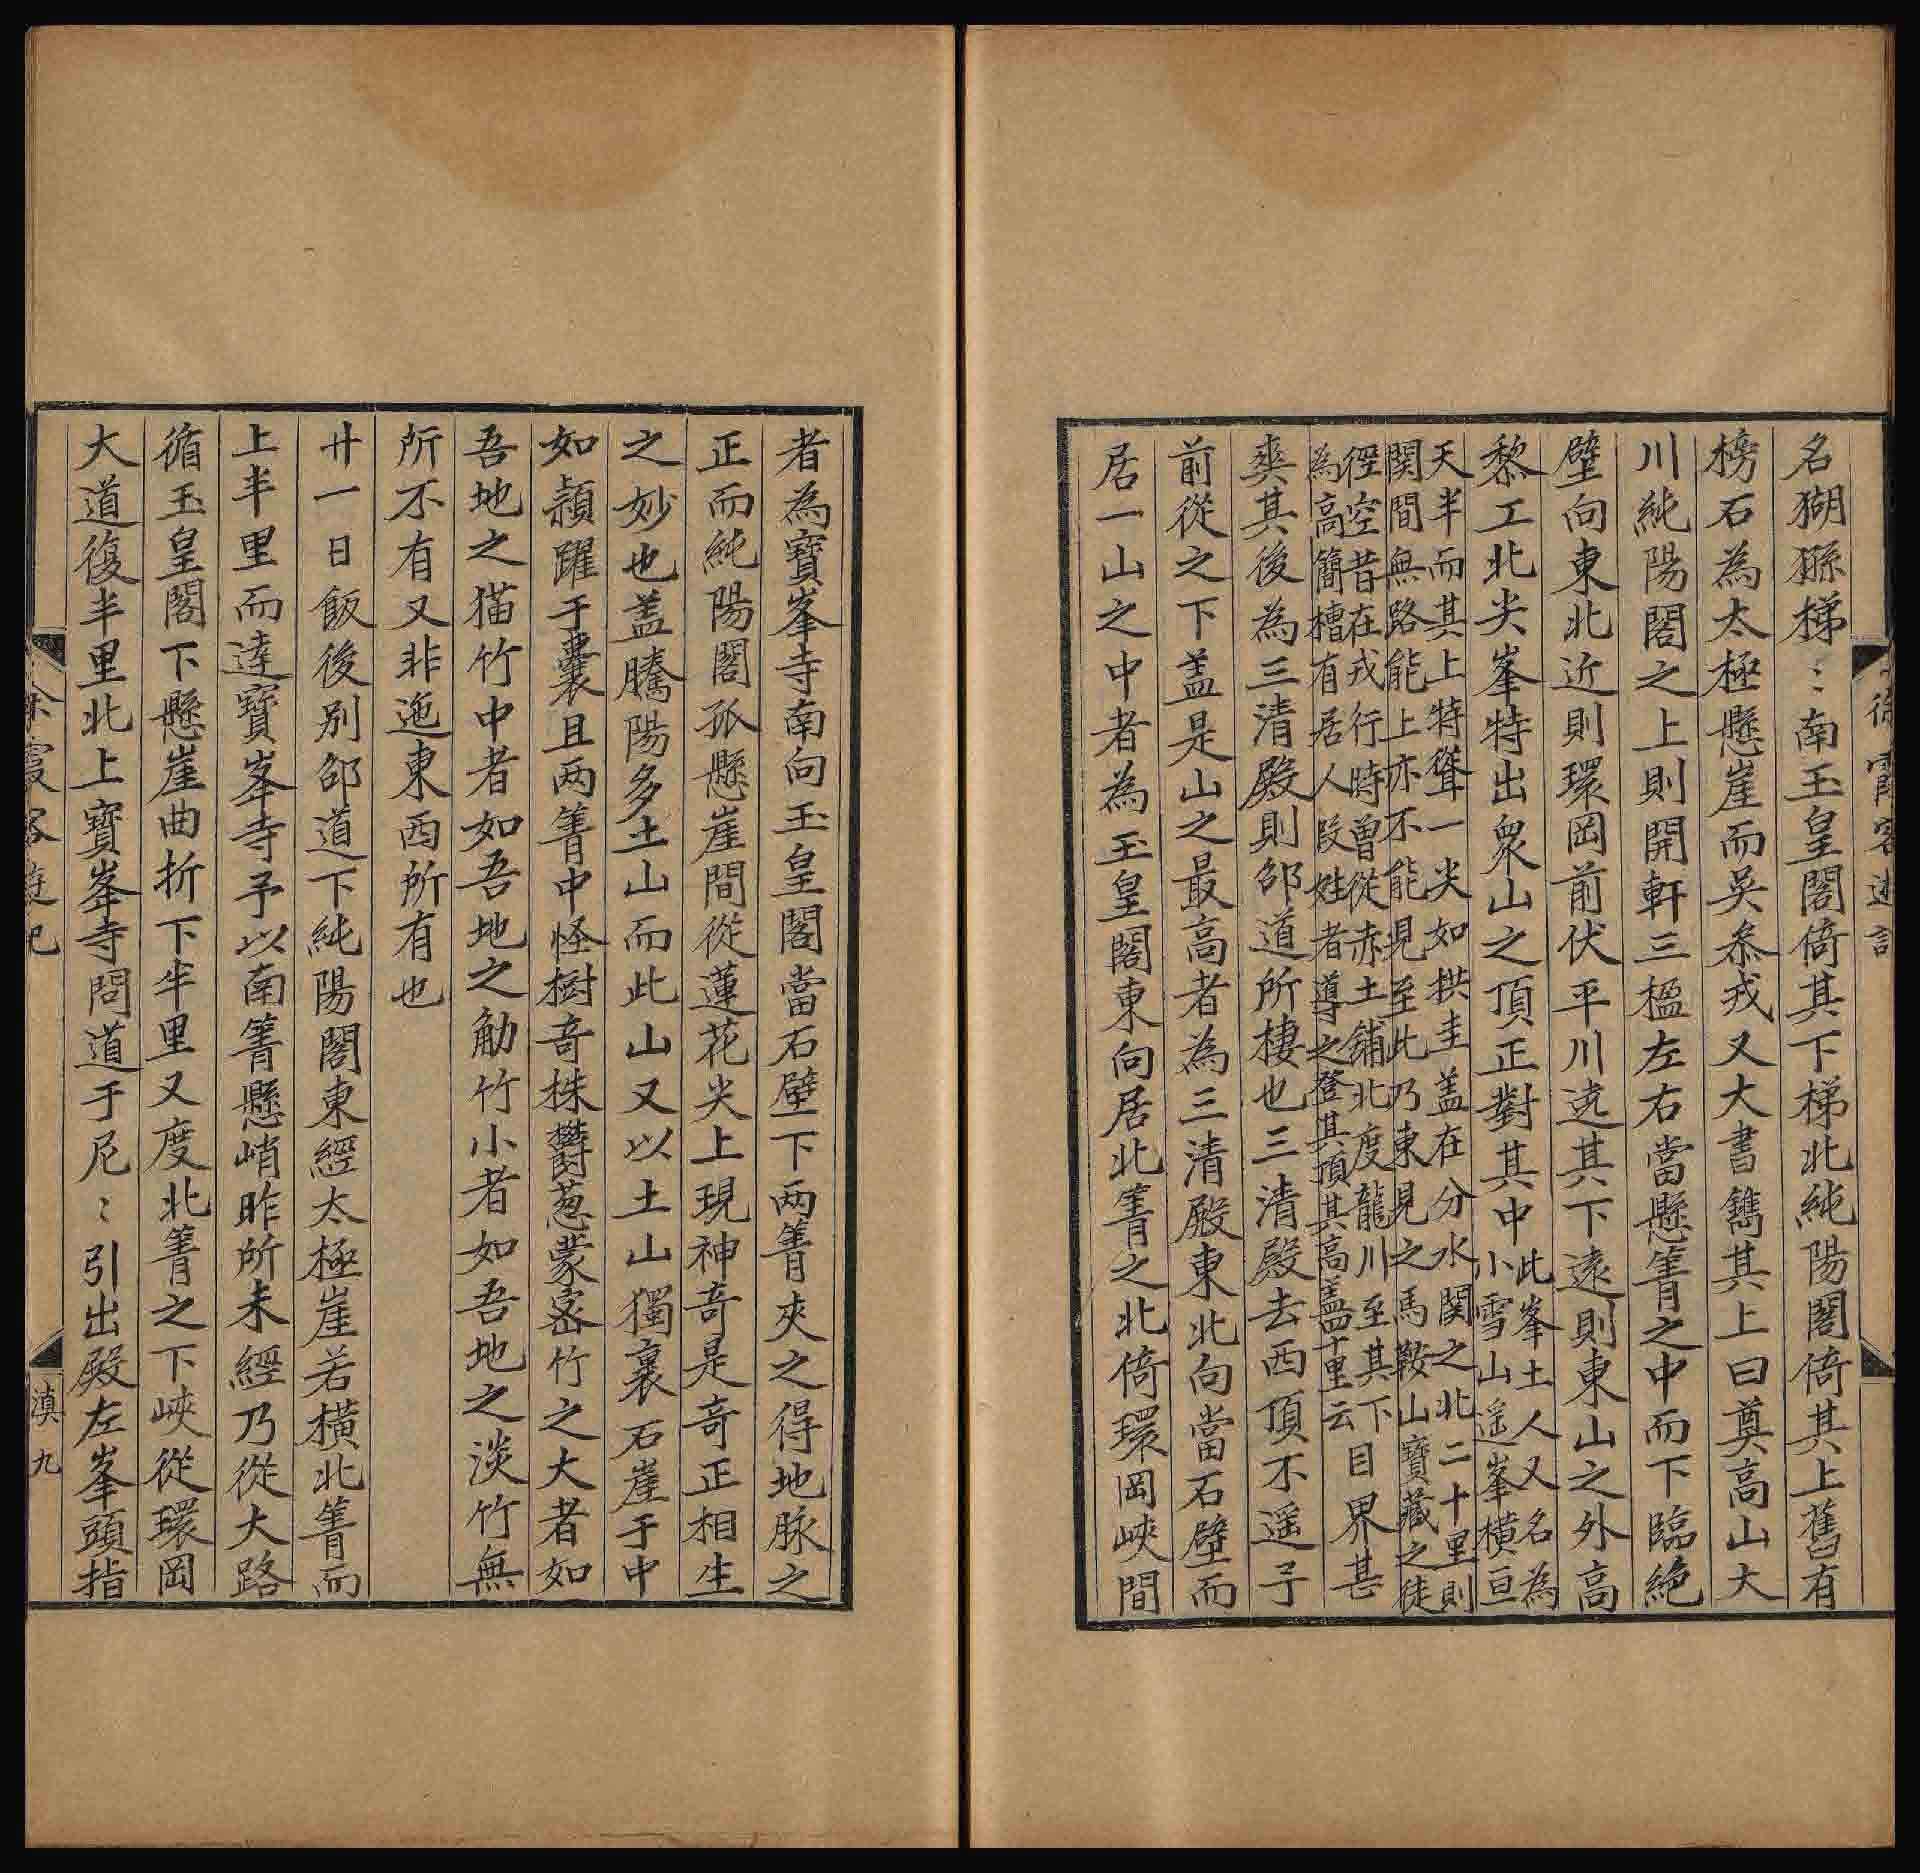 名猢猻梯〻南玉皇閣倚其下梯北純陽閣倚其上舊有
榜石為太極懸崖而吳叅戎又大書鐫其上曰奠高山大
川純陽閣之上則開軒三楹左右當懸箐之中而下臨絶
壁向東北近則環岡前伏平川遶其下遠則東山之外高
黎工北尖峯特出衆山之頂正對其中
此峯土人又名為
小雪山遥峯橫亘
天半而其上特聳一尖如拱圭盖在分水関之北二十里則
関間無路能上亦不能見至此乃東見之馬鞍山寳藏之徒
徑空昔在戎行時曾從赤土舖北度龍川至其下
為高簡槽有居人段姓者導之登其頂其高盖四十里云
目界甚
奭其後為三清殿則邵道所棲也三清殿去西頂不遥予
前從之下盖是山之最高者為三清殿東北向當石壁而
居一山之中者為玉皇閣東向居北箐之北倚環岡峽間
者為寶峯寺南向玉皇閣當石壁下两箐夾之得地脉之
正而純陽閣孤懸崖間從蓮花尖上現神奇是奇正相生
之妙也盖騰陽多土山而此山又以土山獨裹石崖于中
如頴躍于囊且两箐中怪樹奇株欝葱蒙宻竹之大者如
吾地之猫竹中者如吾地之觔竹小者如吾地之淡竹無
所不有又非迤東西所有也
廿一日飯後别邵道下純陽閣東經太極崖若橫北箐而
上半里而達寶峯寺予以南箐懸峭昨所未經乃從大路
循玉皇閣下懸崖曲折下半里又度北箐之下峽從環岡
大道復半里北上寶峯寺問道于尼〻引出殿左峯頭指
徐霞客遊記
滇九